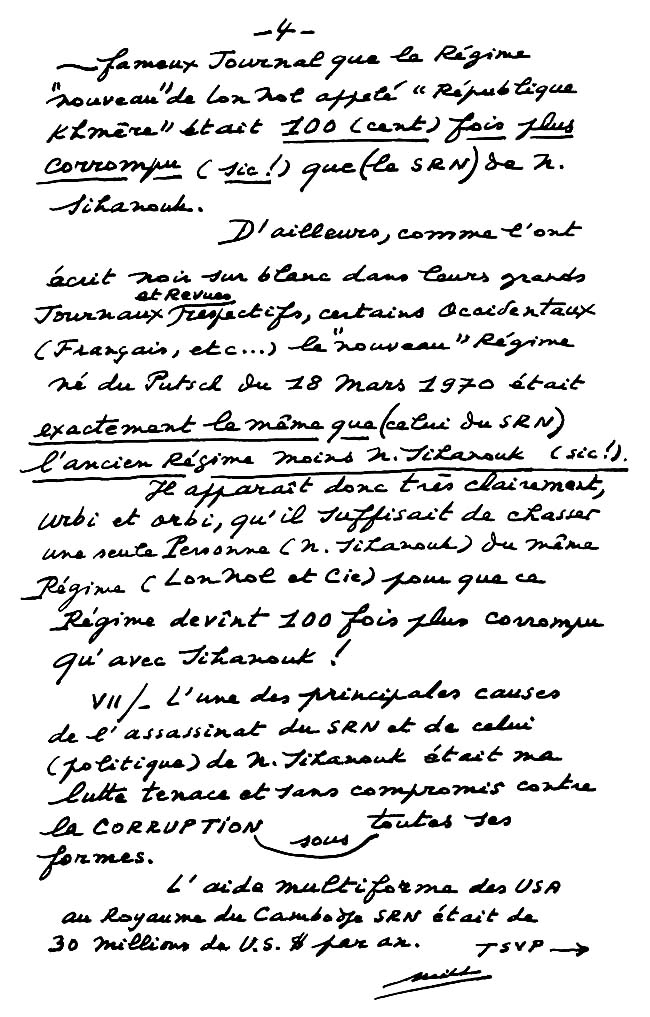 -4-
fameux Journal que le Régime
"nouveau" de Lon Nol appelé "République
Khmère" était 100 (cent) fois plus
corrompu (sic!) que (le SRN) de N.
Sihanouk.
D'ailleurs, comme l'ont
écrit noir sur blanc dans leurs grands
et Revues
Journaux respectifs, certains Occidentaux
(Français, etc...) le "nouveau" Régime
né du Putsch du 18 Mars 1970 était
exactement le même que (celui du SRN)
l'ancien Régime moins N. Sihanouk (sic!).
Il apparaît donc très clairement,
urbi et orbi, qu'il suffisait de chasser
une seule Personne (N. Sihanouk) du même
Régime (Lon Nol et Cie) pour que ce
Régime devînt 100 fois plus corrompu
qu'avec Sihanouk !
VII/- L'une des principales causes
de l'assassinat du SRN et de celui
(politique) de N. Sihanouk était ma
lutte tenace et sans compromis contre
la CORRUPTION sous toutes ses
formes.
L'aide multiforme des USA
au Royaume du Cambodge SRN était de
30 millions de U.S. $ par an. TSVP →